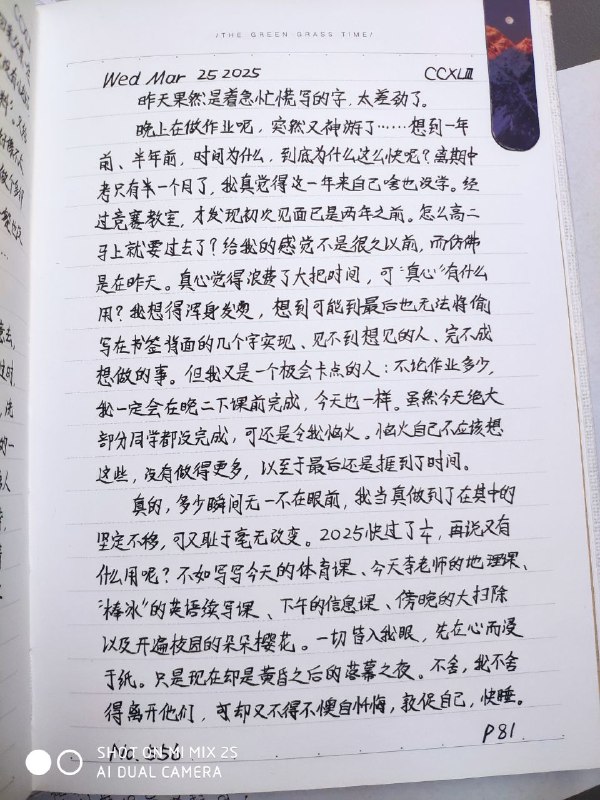 /THE GREEN GRASS TIME/
Wed Mar 25 2025 CCXLIII
昨天果然是着急忙慌写的字，太差劲了。
晚上在做作业呢，突然又神游了……想到一年
前、半年前，时间为什么，到底为什么这么快呢？离期中
考只有半一个月了，我真觉得这一年来自己啥也没学。经
过竞赛教室，才发现初次见面已是两年之前。怎么高二
马上就要过去了？给我的感觉不是很久以前，而仿佛
是在昨天。真心觉得浪费了大把时间，可“真心”有什么
用？我想得浑身发烫，想到可能到最后也无法将偷
写在书签背面的几个字实现、见不到想见的人、完不成
想做的事。但我又是一个极会卡点的人：不论作业多少，
我一定会在晚二下课前完成，今天也一样。虽然今天绝大
部分同学都没完成，可还是令我恼火。恼火自己不应该想
这些，没有做得更多，以至于最后还是捱到了时间。
真的，多少瞬间无一不在眼前，我当真做到了在其中的
坚定不移，可又耻于毫无改变。2025快过了1/4，再说又有
什么用呢？不如写写今天的体育课、今天李老师的地理课、
“棒冰”的英语续写课、下午的信息课、傍晚的大扫除
以及开遍校园的朵朵樱花。一切皆入我眼，先在心而漫
于纸。只是现在却是黄昏之后的落幕之夜。不舍，我不舍
得离开他们，可却又不得不懊自忏悔，敦促自己，快睡。
P81
SHOT ON MI MIX 2S
AI DUAL CAMERA